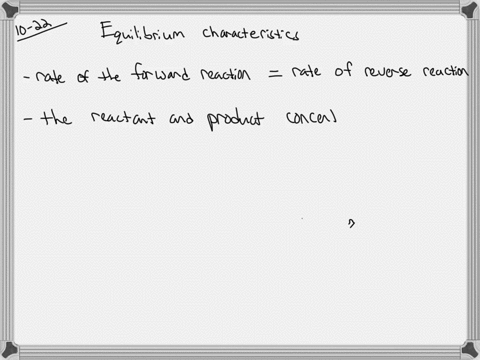 10-22
Equilibrium characteristics
- rate of the forward reaction = rate of reverse reaction
- the reactant and product